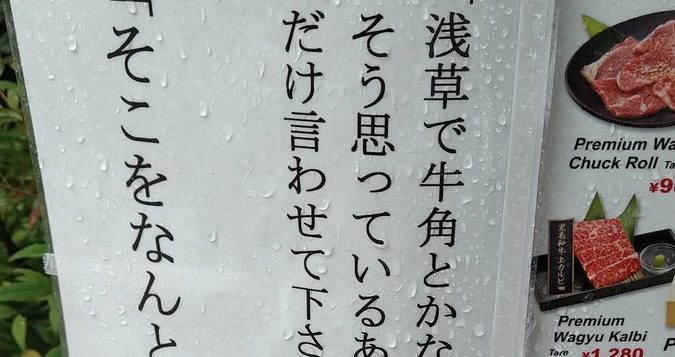 「浅草で牛角とかな
そう思っているあ
だけ言わせて下さ
「そこをなんと
Premium Wa
Chuck Roll Ta
¥9
黒毛和牛上カルビ
Premium
Wagyu Kalbi
Tare ¥1,280
P